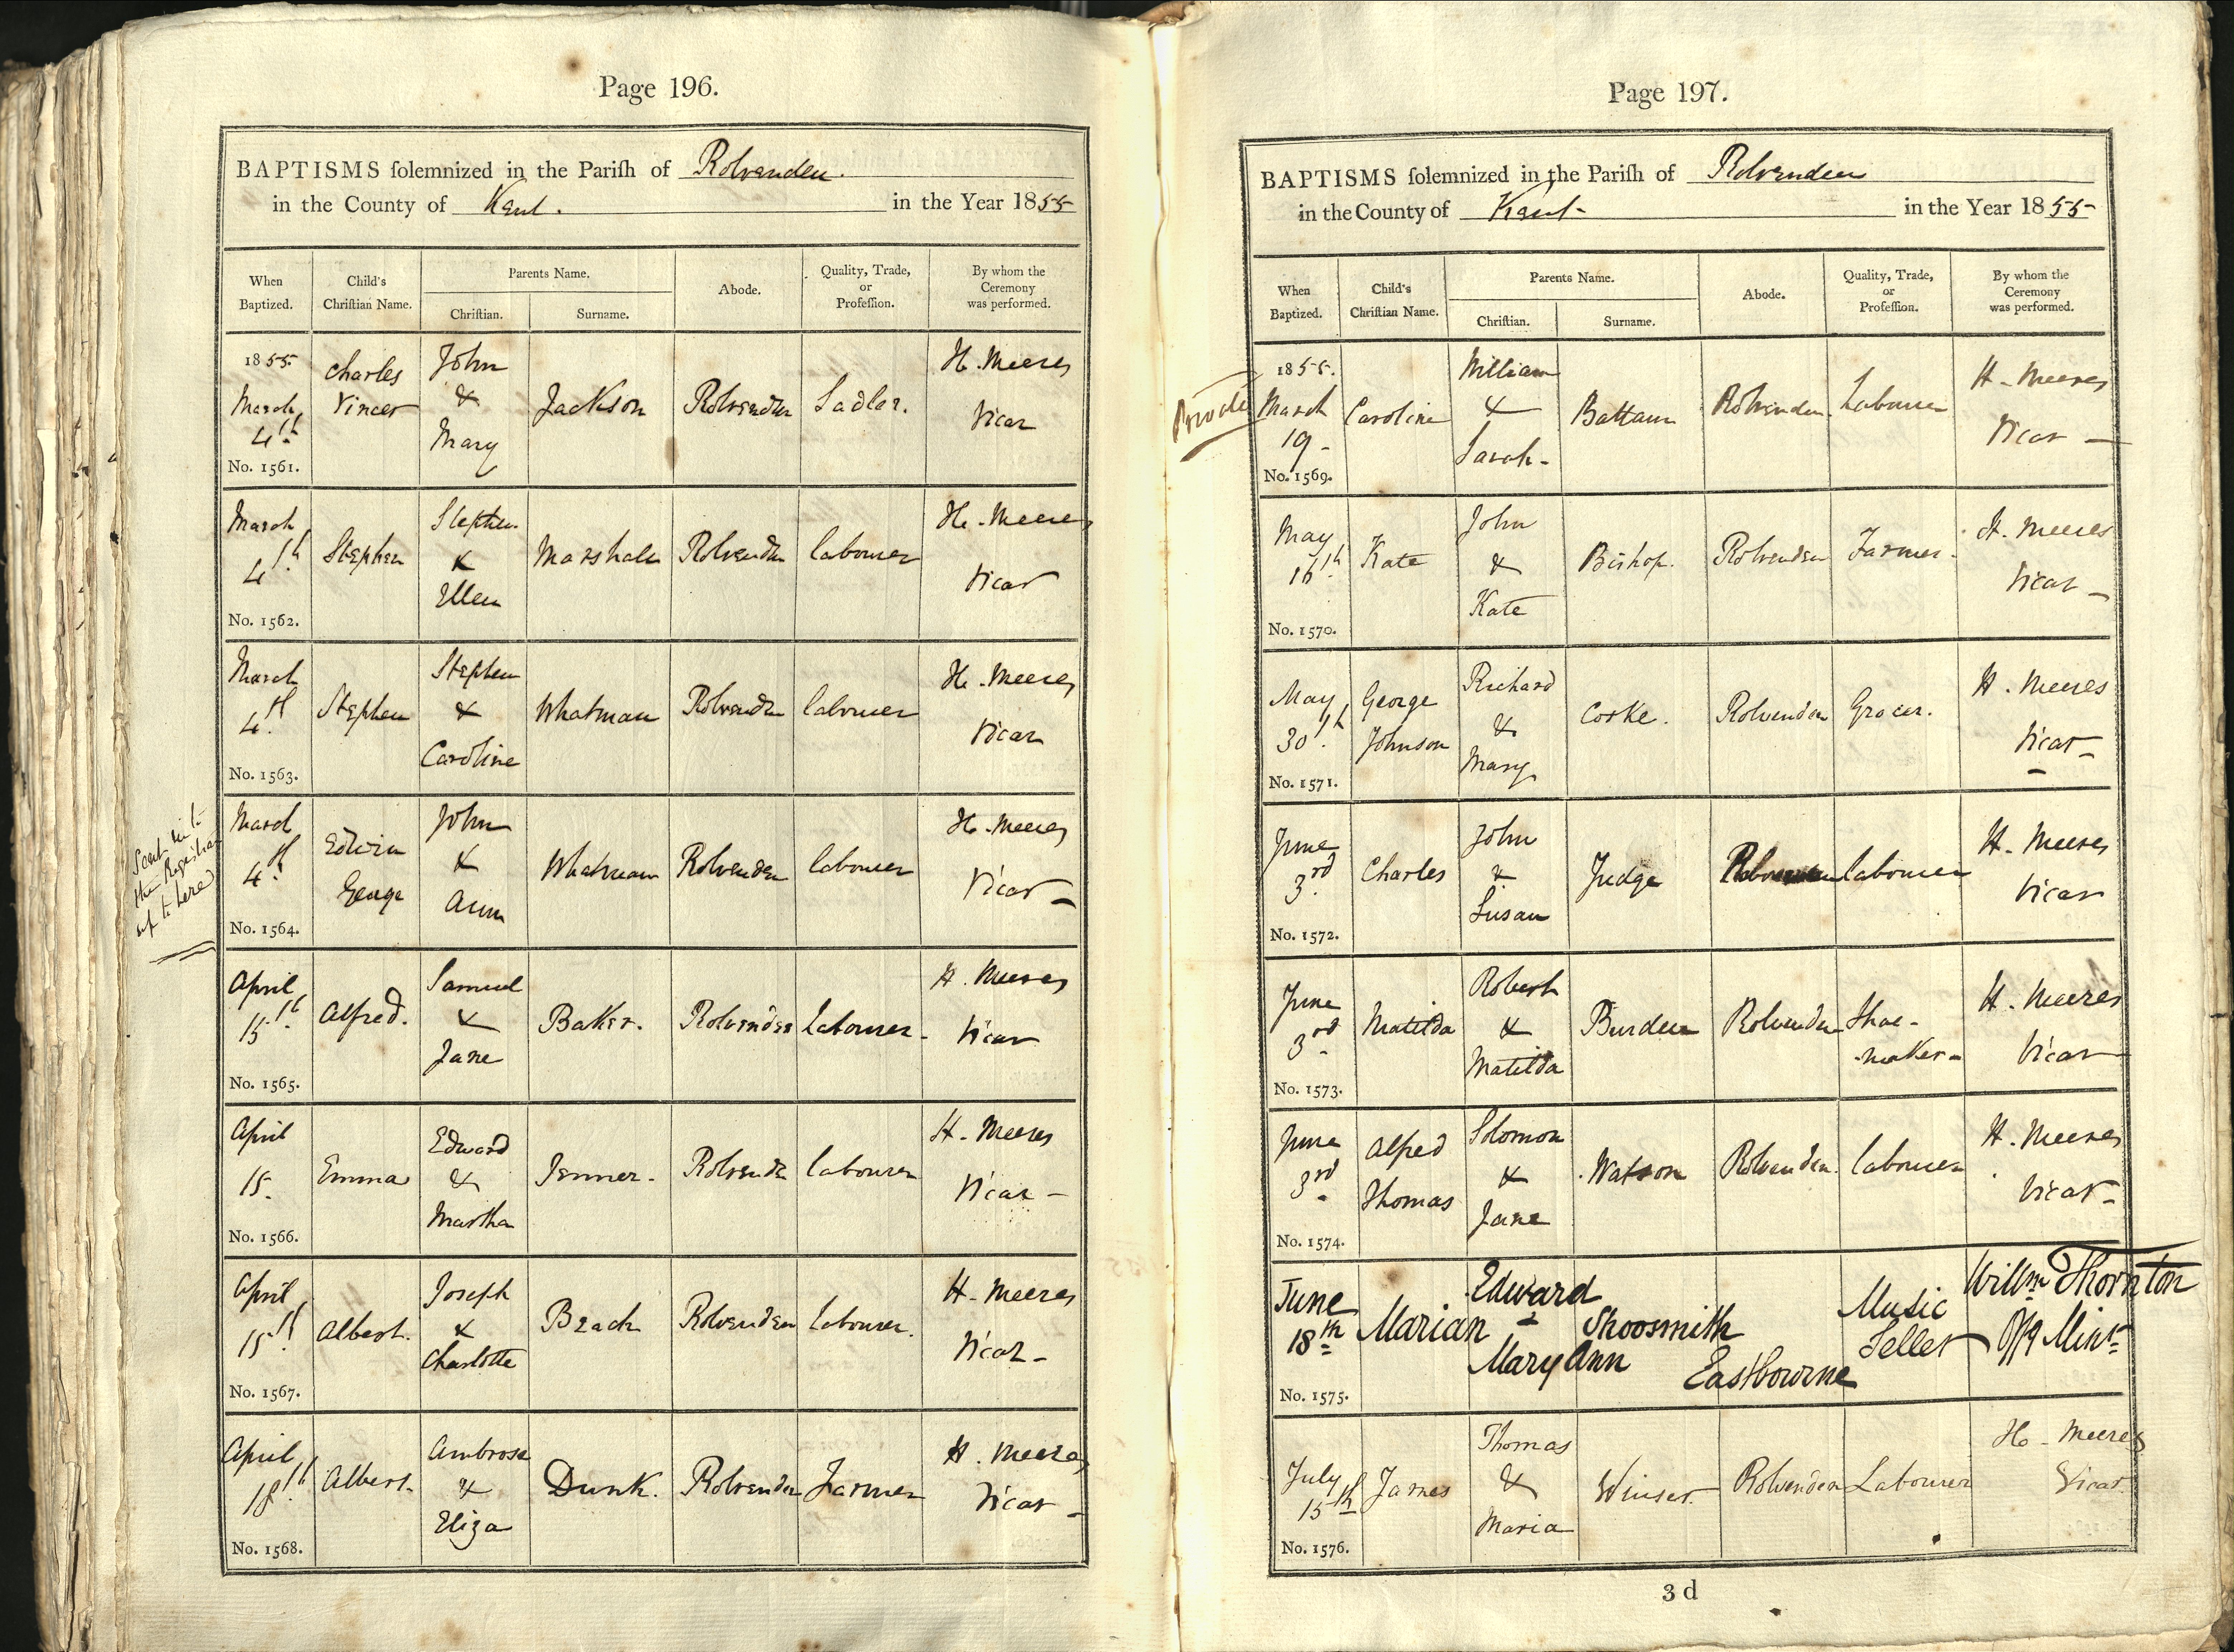 Page 196.
BAPTISMS ſolemnized in the Pariſh of Rolvenden.
in the County of Kent. in the Year 1855
When Baptized.
Child's Chriſtian Name.
Parents Name.
Chriſtian.
Surname.
Abode.
Quality, Trade, or Profeſſion.
By whom the Ceremony was performed.
1855. March 4th No. 1561.
Charles
John & Mary
Jackson
Rolvenden
Sadler.
H. Meeres Vicar
March 4th. No. 1562.
Stephen
Stephen & Ellen
Marshall
Rolvenden
labourer
H. Meeres Vicar
March 4th. No. 1563.
Stephen
Stephen & Caroline
Whatman
Rolvenden
labourer
H. Meeres Vicar
Sent in to
the Registrar
up to here
March 4th. No. 1564.
Edwin George
John & Ann
Whatman
Rolvenden
labourer
H. Meeres Vicar
April 15th. No. 1565.
Alfred.
Samuel & Jane
Baker.
Rolvenden
Labourer
H. Meeres Vicar
April 15. No. 1566.
Emma
Edward & Martha
Jenner.
Rolvenden
labourer
H. Meeres Vicar
April 15th. No. 1567.
Albert.
Joseph & Charlotte
Rolvenden
Labourer.
H. Meeres Vicar
April 18th. No. 1568.
Albert.
Ambrose & Eliza
Dunk.
Rolvenden
Farmer
H. Meeres Vicar
Page 197.
BAPTISMS ſolemnized in the Pariſh of Rolvenden
in the County of Kent in the Year 1855
When Baptized.
Child's Chriſtian Name.
Parents Name.
Chriſtian.
Surname.
Abode.
Quality, Trade, or Profeſſion.
By whom the Ceremony was performed.
Private
1855. March 19 No. 1569.
Caroline
William & Sarah
Battam
Rolvenden
Labourer
H. Meeres Vicar
May 16th. No. 1570.
Kate
John & Kate
Bishop.
Rolvenden
Farmer.
H. Meeres Vicar
May 30th. No. 1571.
George Johnson
Richard & Mary
Rolvenden
Grocer.
H. Meeres Vicar
June 3rd No. 1572.
Charles
John & Susan
Judge
Rolvenden
labourer
H. Meeres Vicar
June 3rd No. 1573.
Matilda
Robert & Matilda
Burden
Rolvenden
Shoe-maker
H. Meeres Vicar
June 3rd No. 1574.
Alfred Thomas
Solomon & Jane
Watson
Rolvenden.
labourer
H. Meeres Vicar
June 18th No. 1575.
Marian
Edward & Mary Ann
Shoosmith
Eastbourne
Music Seller
Willm Thornton Offg Minr
July 15th No. 1576.
James
Thomas & Maria
Winser.
Rolvenden
Labourer
H. Meeres Vicar.
3 d